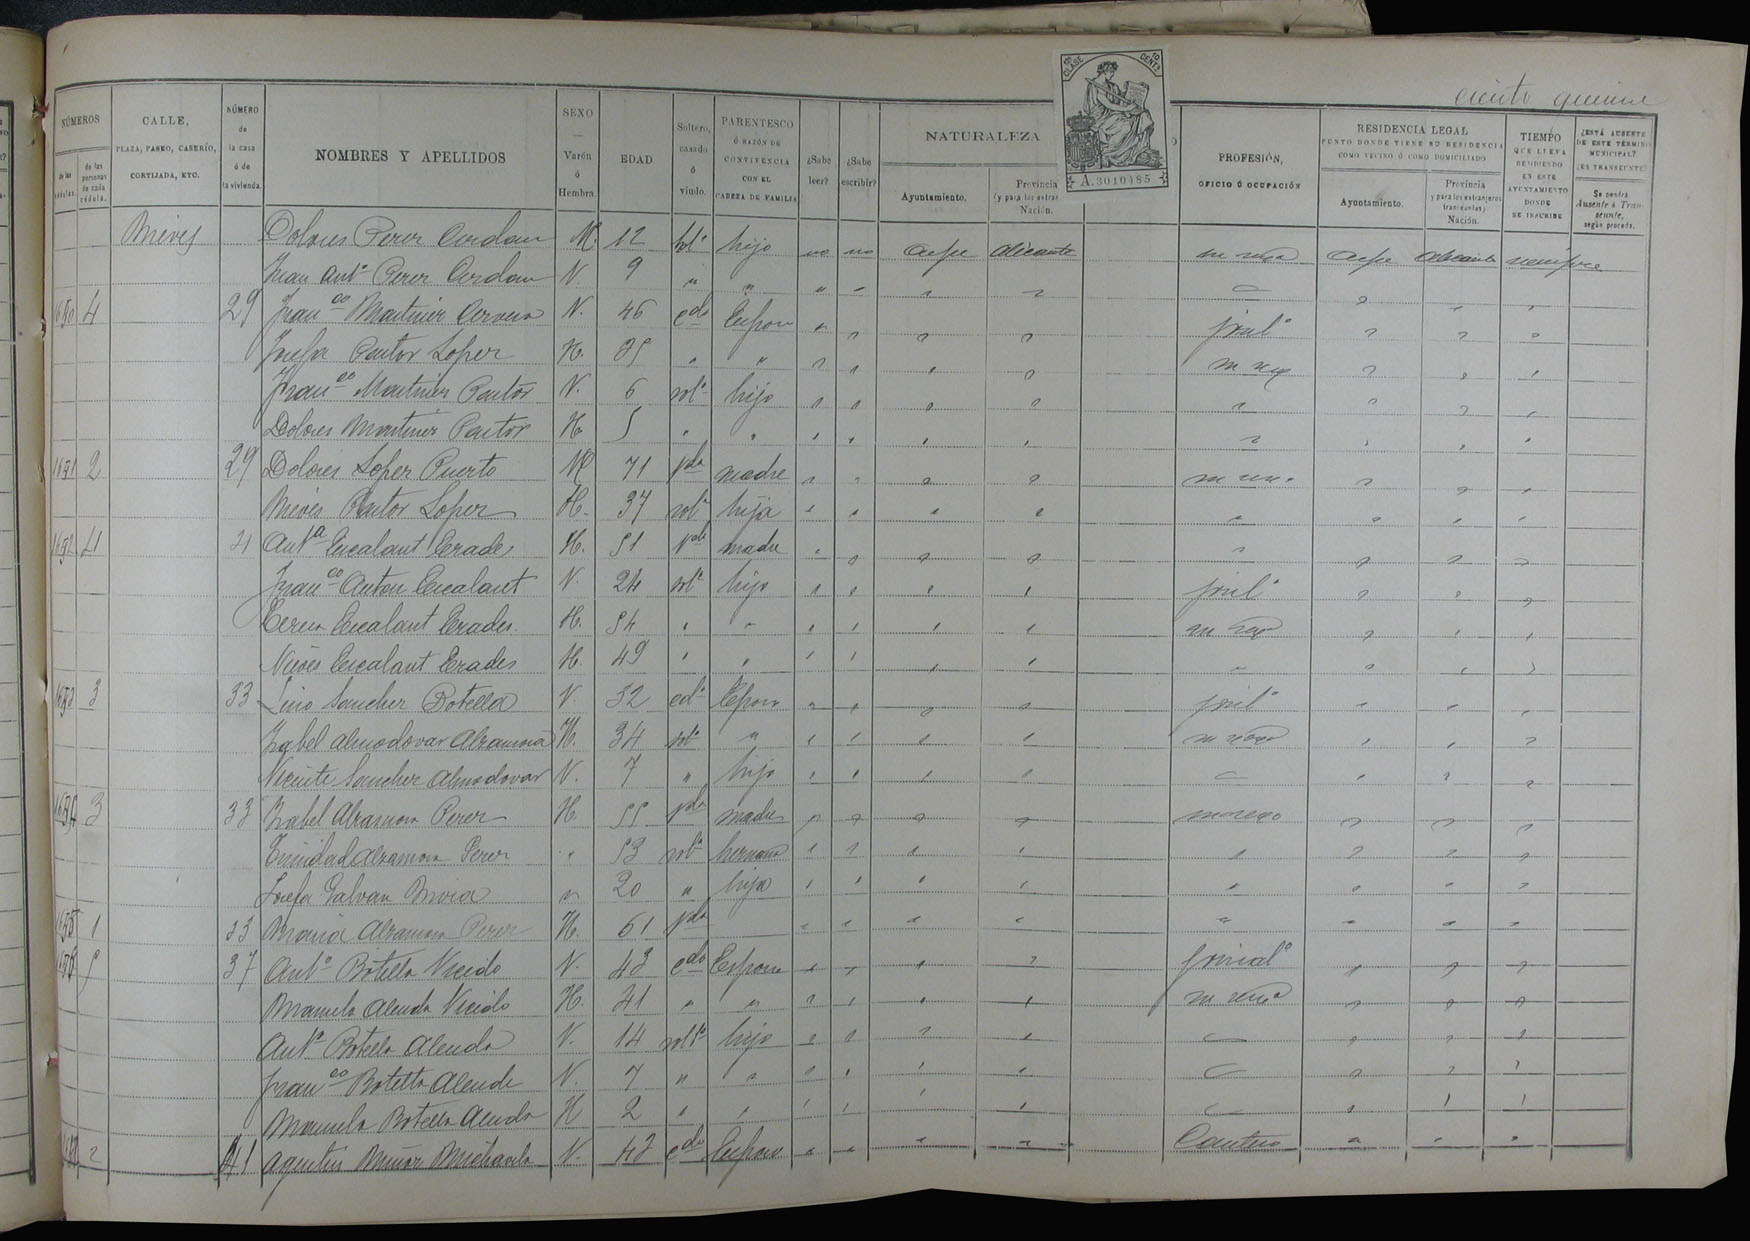 ciento quince
12ª CLASE 10 CENTS
A.3010485
NÚMEROS
de las cédulas.
de las personas de cada cédula.
CALLE,
PLAZA, PASEO, CASERÍO,
CORTIJADA, ETC.
NÚMERO
de
la casa
ó de
la vivienda.
NOMBRES Y APELLIDOS
SEXO
—
Varón
ó
Hembra.
EDAD
Soltero,
casado
ó
viudo.
PARENTESCO
Ó RAZÓN DE
CONVIVENCIA
CON EL
CABEZA DE FAMILIA
¿Sabe
leer?
¿Sabe
escribir?
NATURALEZA
Ayuntamiento.
Provincia
(y para los extran
Nación.
PROFESIÓN,
OFICIO Ó OCUPACIÓN
RESIDENCIA LEGAL
PUNTO DONDE TIENE SU RESIDENCIA
COMO VECINO Ó COMO DOMICILIADO
Ayuntamiento.
Provincia
y para los extranjeros
transeuntes)
Nación.
TIEMPO
QUE LLEVA
RESIDIENDO
EN ESTE
AYUNTAMIENTO
DONDE
SE INSCRIBE
¿ESTÁ AUSENTE
DE ESTE TÉRMINO
MUNICIPAL?
¿ES TRANSEUNTE?
Se pondrá
Ausente ó Tran-
seunte,
según proceda.
Nieves Dolores Perez Cerdan 12 solª hijo no no Aspe Alicante Aspe Alicante siempre
Juan Antº Perez Cerdan V. 9 " " " " " "
1650 4 29 Franco Martinez Cervera V. 46 cdo Esposo " " " " jornlº " " "
Josefa Pastor Lopez H. 35 " " " " " " " " "
Franco Martinez Pastor V. 6 solº hijo " " " " " " " "
Dolores Martinez Pastor H 5 " " " " " " " " " "
1651 2 29 Dolores Lopez Puerto 71 vda madre " " " " " " "
Nieves Pastor Lopez H. 37 solª hija " " " " " " " "
1652 4 31 Antª Escalant Erades H. 51 vda madre " " " " " " " "
Franco Anton Escalant V. 24 solº hijo " " " " jornlº " " "
Escalant Erades H. 54 " " " " " " " " "
Nieves Escalant Erades H. 49 " " " " " " " " " "
1653 3 33 Lino Sanchez Botella V. 32 cdº Esposo " " " " jornlº " " "
Isabel Almodovar Alzamora H. 34 solª " " " " " " " "
Vicente Sanchez Almodovar V. 7 " hijo " " " " " " "
1654 3 33 Isabel Alzamora Perez H 55 vda madre " " " " " " "
Trinidad Alzamora Perez " 53 solª hermana " " " " " " " "
Josefa Galvan " 20 " hija " " " " " " " "
1655 1 33 Maria Alzamora Perez H. 61 vda " " " " " " " "
1656 5 37 Antº Botella Vicedo V. 43 cdo Esposo " " " " jornalº " " "
Manuela Alenda Vicedo H. 41 " " " " " " " " "
Antº Botella Alenda V. 14 soltº hijo " " " " " " "
Franco Botella Alenda V. 7 " " " " " " " " "
Manuela Botella Alenda H 2 " " " " " " " " "
1657 2 41 Agustin V. 43 cdo Esposo " " " " Cantero " " "